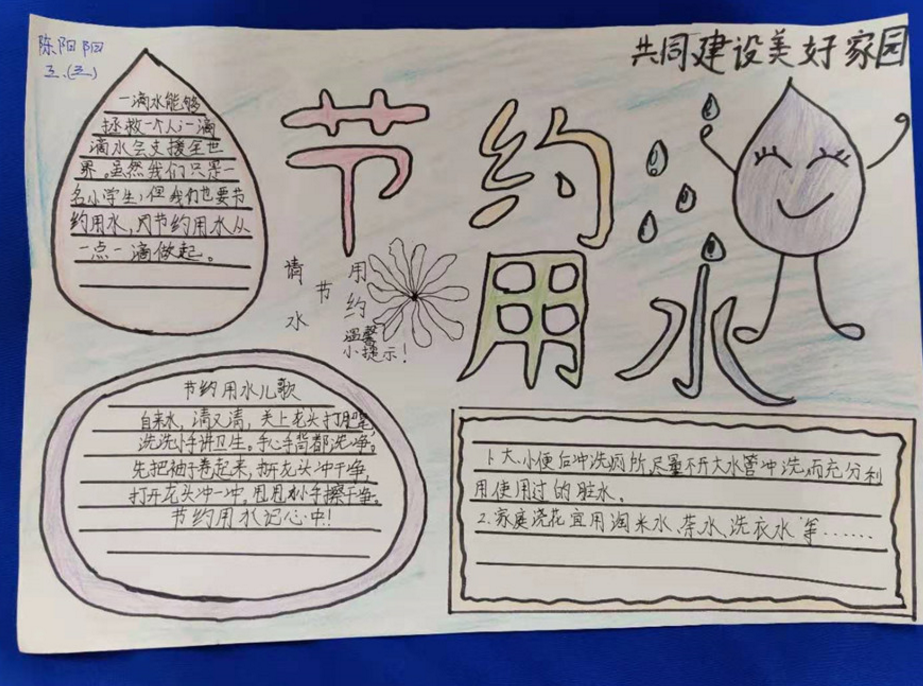 陈阳阳
三.(三)
共同建设美好家园
节约
用水
一滴水能够
拯救一个人;一滴
滴水会支援全世
界。虽然我们只是一
名小学生,但我们也要节
约用水,节约用水从
一点一滴做起。
请节约用水
温馨
小提示!
节约用水儿歌
自来水,清又清,关上龙头
洗洗小手讲卫生。手心手背都洗净,
先把袖子卷起来,打开龙头冲干净,
打开龙头冲一冲,甩甩小手擦干净。
节约用水记心中!
1.大、小便后冲洗厕所,尽量不开大水管冲洗,而充分利
用使用过的脏水。
2.家庭浇花宜用淘米水、茶水、洗衣水等……